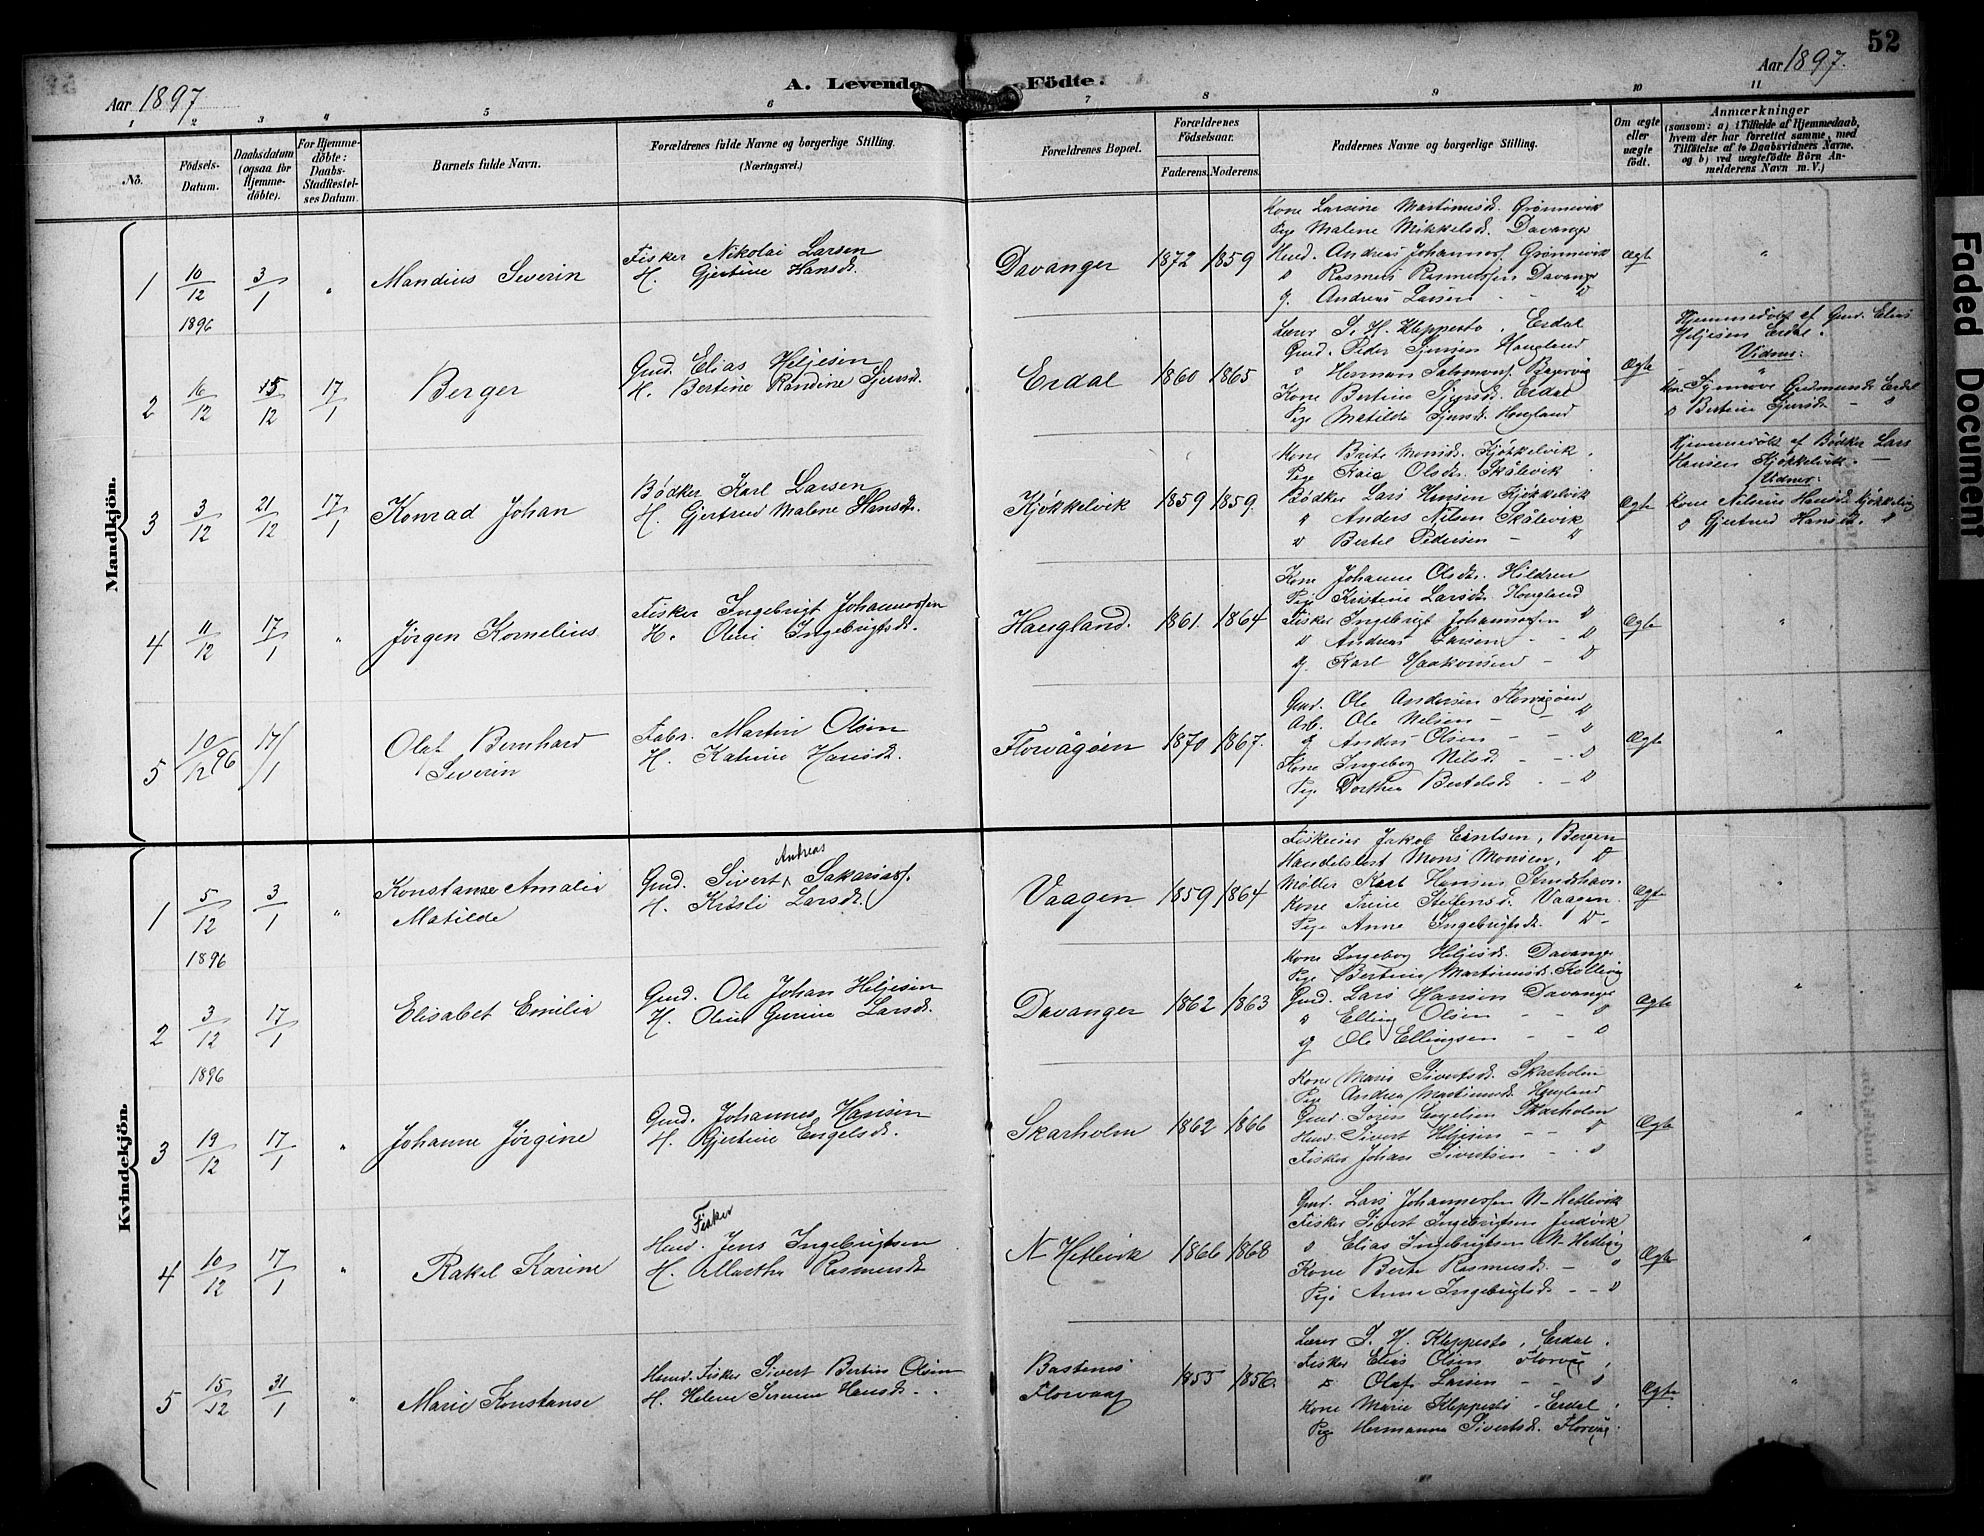 52
Aar 1897
A. Levende Födte.
Aar 1897.
1 2 3 4 5 6 7 8 9 10 11
No.
Födsels-Datum.
Daabsdatum (ogsaa for Hjemmedöbte).
For Hjemmedöbte: Daabs-Stadfestelses Datum.
Barnets fulde Navn.
Forældrenes fulde Navne og borgerlige Stilling.
(Næringsvei.)
Forældrenes Bopæl.
Forældrenes Födselsaar.
Faderens. Moderens.
Faddernes Navne og borgerlige Stilling.
Om ægte eller uægte födt.
Anmærkninger
(saasom: a) i Tilfælde af Hjemmedaab, hvem der har forrettet samme, med Tilföielse af to Daabsvidners Navne, og b) ved uægtefödte Börn Anmelderens Navn m. V.)
Mandkjön.
1 10/12 1896 3/1 " Mandius Severin
Fisker Nikolai Larsen
H. Gjertine Hansd.
Davanger 1872 1859
Kone Larsine Martinusd. Grønnevik
Pige Malene Mikkelsd. Davanger
Ungk. Andreas Johannesf. Grønnevik
" Rasmus Rasmussen Davanger
g. Andreas Larsen - "
Ægte "
2 16/12 15/12 17/1 Berger
Gmd. Elias Heljesen
H. Bertine Randine Sjursd.
Erdal 1860 1865
Lærer S. H. Kleppestø, Erdal
Gmd. Peder Sjursen Haugland
" Herman Salomonsf.
Kone Bertine Sjursd. Erdal
Pige Matilde Sjursd. Haugland
Ægte
Hjemmedøbt af Gmd. Elias
Heljesen Erdal.
Vidner:
Kone Synnøve Gudmundsd. Erdal
" Bertine Sjursd. - "
3 3/12 21/12 17/1 Konrad Johan
Bødker Karl Larsen
H. Gjertrud Malene Hansd.
Kjøkkelvik 1859 1859.
Kone Brite Monsd. Kjøkkelvik
Pige Kaia Olsdr. Skålevik
Bødker Lars Hansen Kjøkkelvik
" Anders Nilsen Skålevik
" Bertel Pedersen - "
Ægte
Hjemmedøbt af Bødker Lars
Hansen Kjøkkelvik.
Vidner:
Kone Nilsine Hansd. Kjøkkelvig
" Gjertrud Hansd. "
4 11/12 17/1 " Jørgen Kornelius
Fisker Ingebrigt Johannessen
H. Oline Ingebrigtsd.
Haugland. 1861. 1864
Kone Johanne Olsdr. Hildren
Pige Kristine Larsd. Haugland
Fisker Ingebrigt Johannessen "
" Andreas Larsen - - "
g. Karl Haakonsen - "
Ægte "
5 10/12 96 17/1
Olaf Bernhard
Severin
Fabr. Martin Olsen
H. Katrine Hansd.
Florvågøen 1870 1867.
Gmd. Ole Andersen Florvågøen
Arb. Ole Nilsen - - "
g. Anders Olsen - - "
Kone Ingeborg Nilsd. - - "
Pige Dorthea Bertelsd. - - "
Ægte "
Kvindekjön.
1 5/12 1896 3/1 "
Konstanse Amalia
Matilde
Andreas
Gmd. Sivert Sakariasf.
H. Kristi Larsd.
Vaagen 1859 1864
Jakob Eintsen, Bergen
Mons Monsen, "
Møller Karl Hansen Strudshavn.
Kone Trine Steffensd. Vaagen.
Pige Anne Ingebrigtsd. "
Ægte "
2 3/12 1896 17/1 Elisabet Emilia
Gmd. Ole Johan Heljesen
H. Oline Gurine Larsd.
Davanger 1862 1863
Kone Ingeborg Heljesd. Davanger
Pige Bertine Martinusd. Follevig
Gmd. Lars Hansen Davanger
" Elling Olsen - - "
g. Ole Ellingsen - - "
Ægte "
3 19/12 17/1 " Johanne Jørgine
Gmd. Johannes Hansen
H. Gjertine Engelsd.
Skarholm 1862 1866
Kone Maris Sivertsd. Skarholm
Pige Andrea Martinusd. Haugland
Gmd. Søren Engelsen Skarholm
Sivert Heljesen - - "
Fisker Johan Sivertsen - - "
Ægte "
4 10/12 17/1 " Rakel Karine
Fisker
Jens Ingebrigtsen
H. Martha Rasmusdt.
N Hetlevik 1866 1868
Gmd. Lars Johannessen N-Hetlevik
Fisker Sivert Ingebrigtsen Indvik
" Elias Ingebrigtsen N-Hetlevig
Kone Berte Rasmusd. - "
Pige Anne Ingebrigtsd. - - "
Ægte "
5 15/12 31/1 " Marie Konstanse
Fisker Sivert Bertin Olsen
H. Helene Serine Hansd.
Florvaag 1855 1856.
Lærer S. H. Kleppestø, Erdal.
Fisker Elias Olsen Florvåg
" Olaf Larsen - - "
Kone Marie Kleppestø - Erdal
Pige Hermanna Sivertsd. Florvåg.
Ægte "
Faded Document